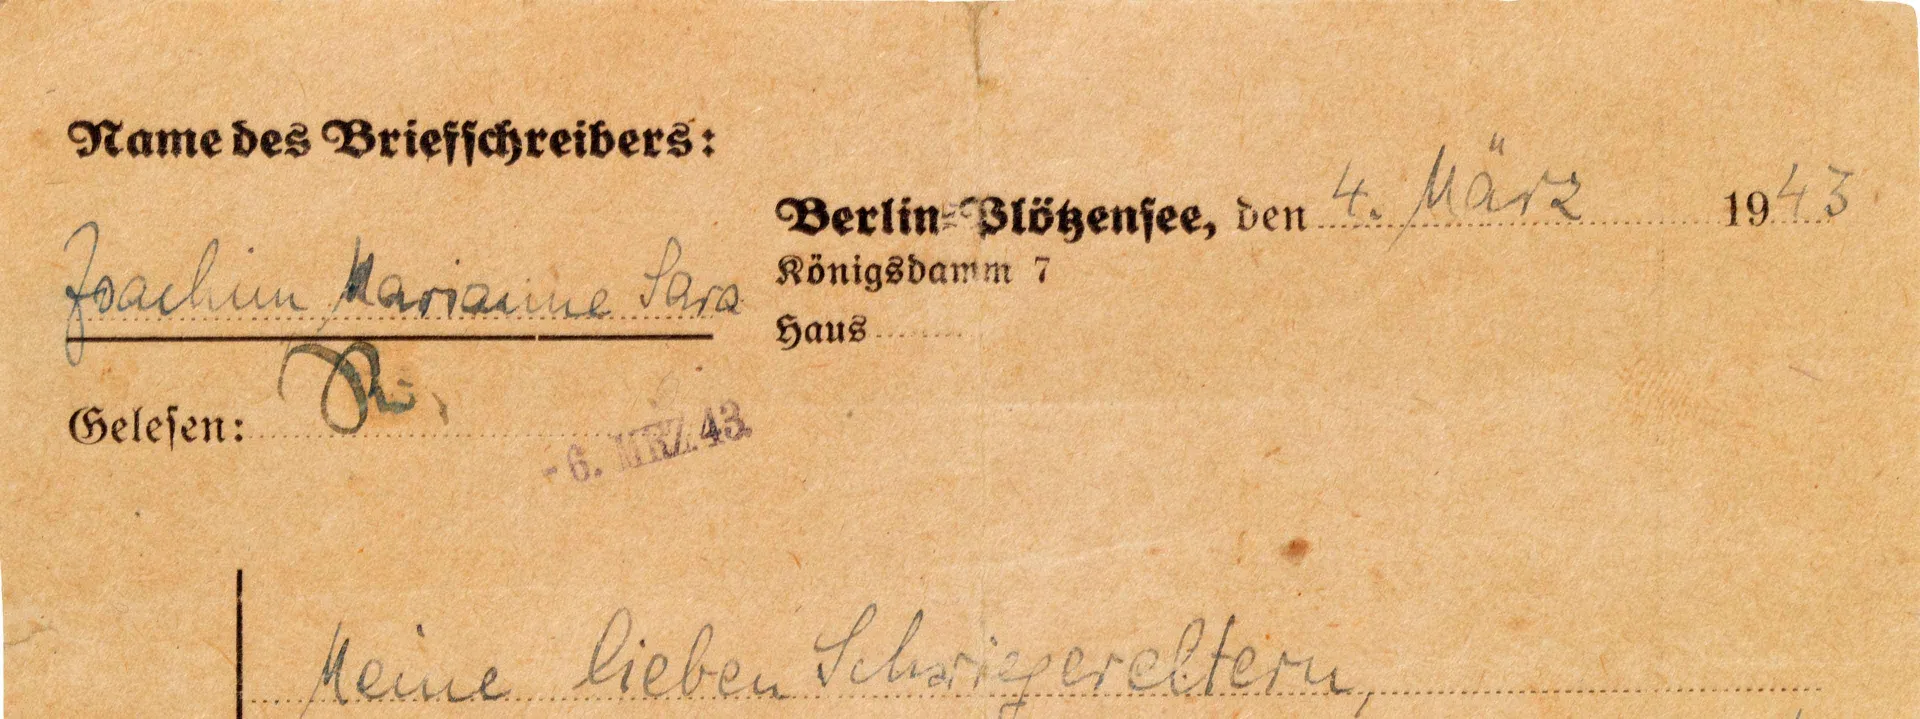 Name des Briefschreibers:
Joachim Marianne Sara
Gelesen:
- 6. MRZ. 43.
Berlin-Plötzensee, den 4. März 1943
Königsdamm 7
Haus
Meine lieben Schwiegereltern,